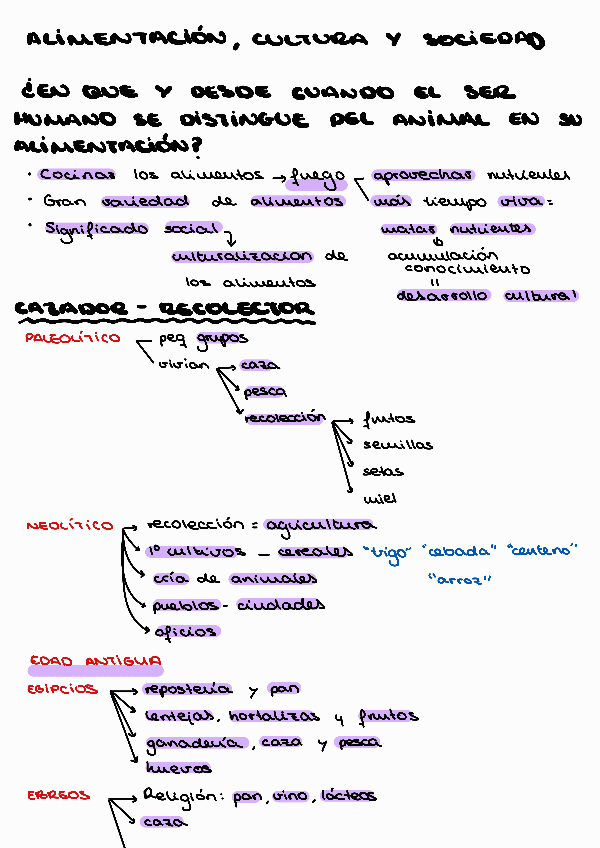 ALIMENTACIÓN, CULTURA Y SOCIEDAD
¿EN QUE Y DESDE CUANDO EL SER
HUMANO SE DISTINGUE DEL ANIMAL EN SU
ALIMENTACIÓN?
· Cocinar los alimentos → fuego aprovechar nutrientes
· Gran variedad de alimentos más tiempo viva =
· Significado social matar nutrientes
culturalización de acumulación
conocimiento
los alimentos =
desarrollo cultural
CAZADOR - RECOLECTOR
PALEOLÍTICO peq grupos
vivian → caza
→ pesca
→ recolección → frutos
→ semillas
→ setas
→ miel
NEOLÍTICO → recolección = agricultura
→ 1º cultivos - cereales "trigo" "cebada" "centeno"
→ cría de animales "arroz"
→ pueblos - ciudades
→ oficios
EDAD ANTIGUA
EGIPCIOS → repostería y pan
→ lentejas, hortalizas y frutos
→ ganadería, caza y pesca
→ huevos
EBREOS → Religión: pan, vino, lácteos
→ caza